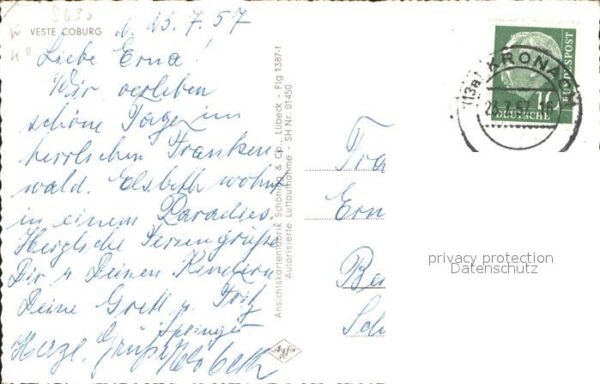 VESTE COBURG
d. 25.7.57
Liebe Erna!
Wir verleben
schöne Tage im
herrlichen Franken-
wald. Elsbeth wohnt
in einem Paradies.
Herzliche Feriengrüße
Dir u Deinen Kindern
Deine Gretl u. Fritz
Springer
Herzl. Grüße Elsbeth
Ansichtskartenfabrik Schöning & Co., Lübeck - Flg 1387-1
Autorisierte Luftaufnahme - SH Nr. 01450
Agfa
(13a) KRONACH
10
DEUTSCHE
BUNDESPOST
Fra
Ern
Be
Sch
privacy protection
Datenschutz